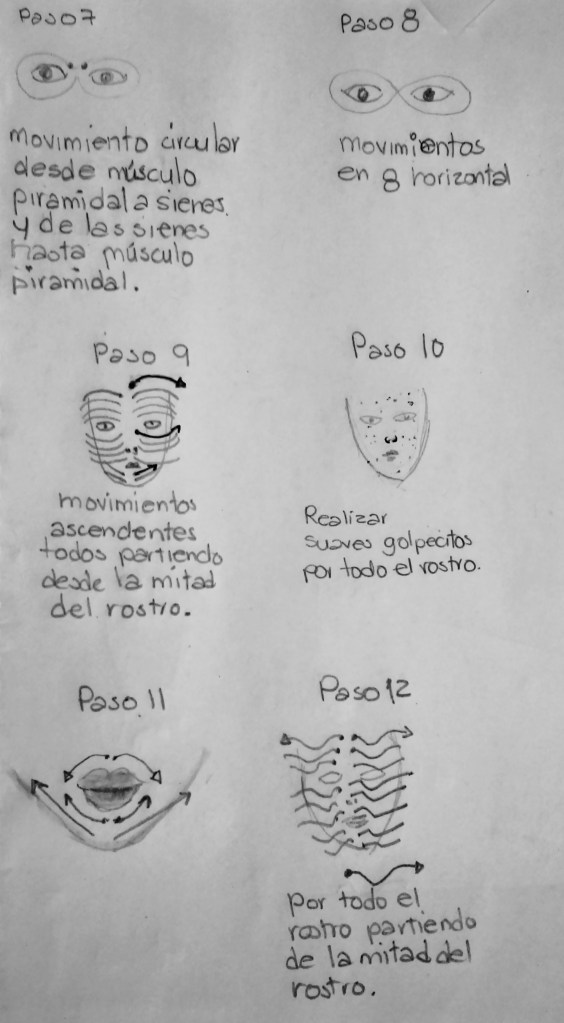 Paso 7
movimiento circular
desde músculo
piramidal a sienes.
y de las sienes
hasta músculo
piramidal.
Paso 8
movimientos
en 8 horizontal
Paso 9
movimientos
ascendentes
todos partiendo
desde la mitad
del rostro.
Paso 10
Realizar
suaves golpecitos
por todo el rostro.
Paso 11
Paso 12
por todo el
rostro partiendo
de la mitad del
rostro.